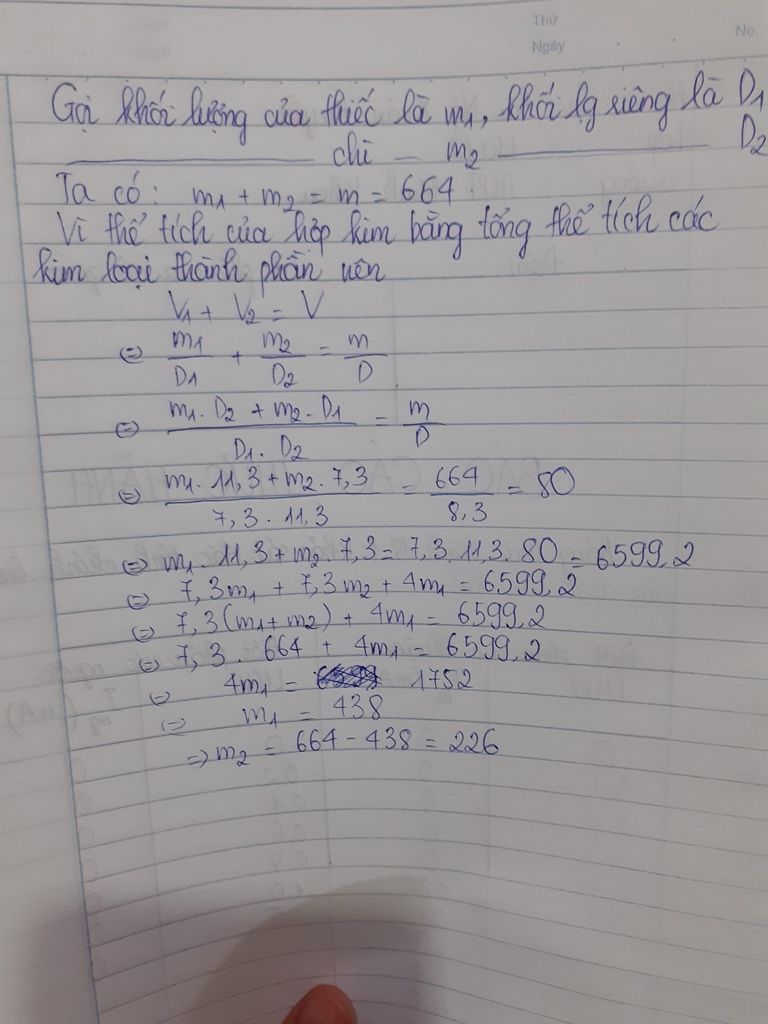 Thứ
Ngày
No.
Gọi khối lượng của thiếc là m₁, khối lg riêng là D₁
——— chì — m₂ ——— D₂
Ta có: m₁ + m₂ = m = 664
Vì thể tích của hợp kim bằng tổng thể tích các
kim loại thành phần nên
V₁ + V₂ = V
⇔ m₁/D₁ + m₂/D₂ = m/D
⇔ (m₁. D₂ + m₂. D₁)/(D₁. D₂) = m/D
⇔ (m₁. 11,3 + m₂. 7,3)/(7,3. 11,3) = 664/8,3 = 80
⇔ m₁. 11,3 + m₂. 7,3 = 7,3. 11,3. 80 = 6599,2
⇔ 7,3m₁ + 7,3m₂ + 4m₁ = 6599,2
⇔ 7,3(m₁+m₂) + 4m₁ = 6599,2
⇔ 7,3. 664 + 4m₁ = 6599,2
⇔ 4m₁ = 1752
⇔ m₁ = 438
⇒ m₂ = 664 - 438 = 226